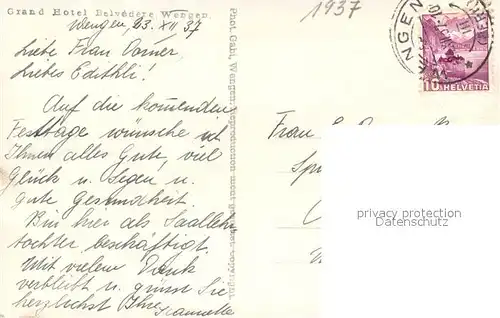 Grand Hotel Belvédère Wengen.
1937
Wengen, 23. XII 37
Liebe Frau
Liebes Edithli!
Auf die kommenden
Festtage wünsche ich
Ihnen alles Gute, viel
Glück u. Segen, u.
gute Gesundheit.
Bin hier als Saallehr
tochter beschäftigt.
Mit vielem Dank
verbleibt u. grüsst Sie
herzlichst Ihre
Jeannette
Phot. Gabi, Wengen. Reproduction
WENGEN
10 HELVETIA
Frau
privacy protection
Datenschutz